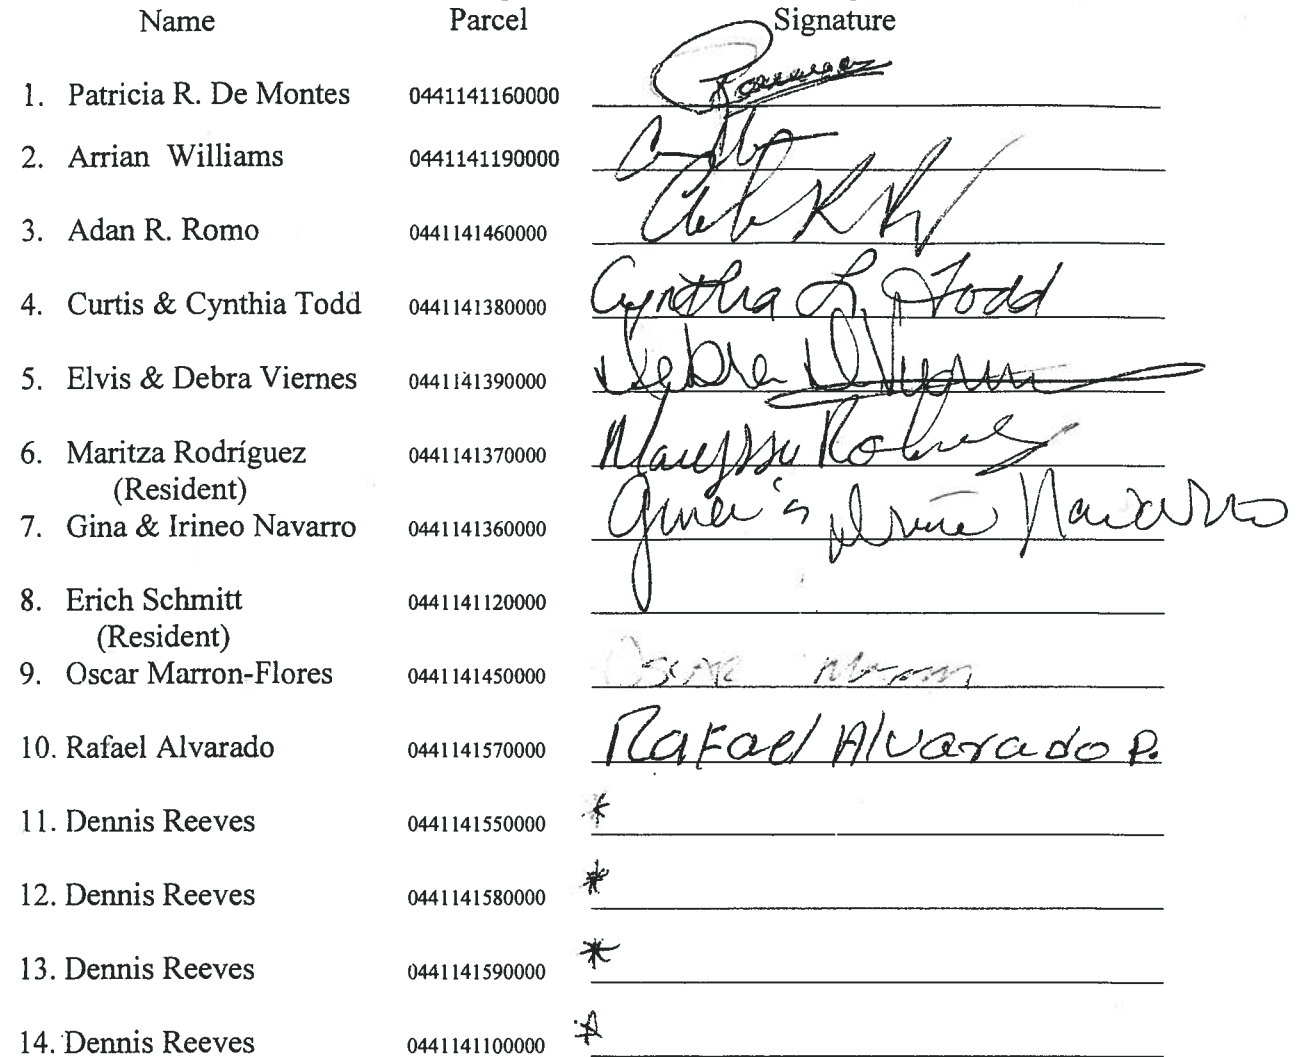 Name Parcel Signature
1. Patricia R. De Montes 0441141160000
2. Arrian Williams 0441141190000
3. Adan R. Romo 0441141460000
4. Curtis & Cynthia Todd 0441141380000 Cynthia L. Todd
5. Elvis & Debra Viernes 0441141390000 Debra
6. Maritza Rodríguez 0441141370000
(Resident)
7. Gina & Irineo Navarro 0441141360000 Navarro
8. Erich Schmitt 0441141120000
(Resident)
9. Oscar Marron-Flores 0441141450000 Oscar
10. Rafael Alvarado 0441141570000 Rafael Alvarado P.
11. Dennis Reeves 0441141550000 *
12. Dennis Reeves 0441141580000 *
13. Dennis Reeves 0441141590000 *
14. Dennis Reeves 0441141100000 *